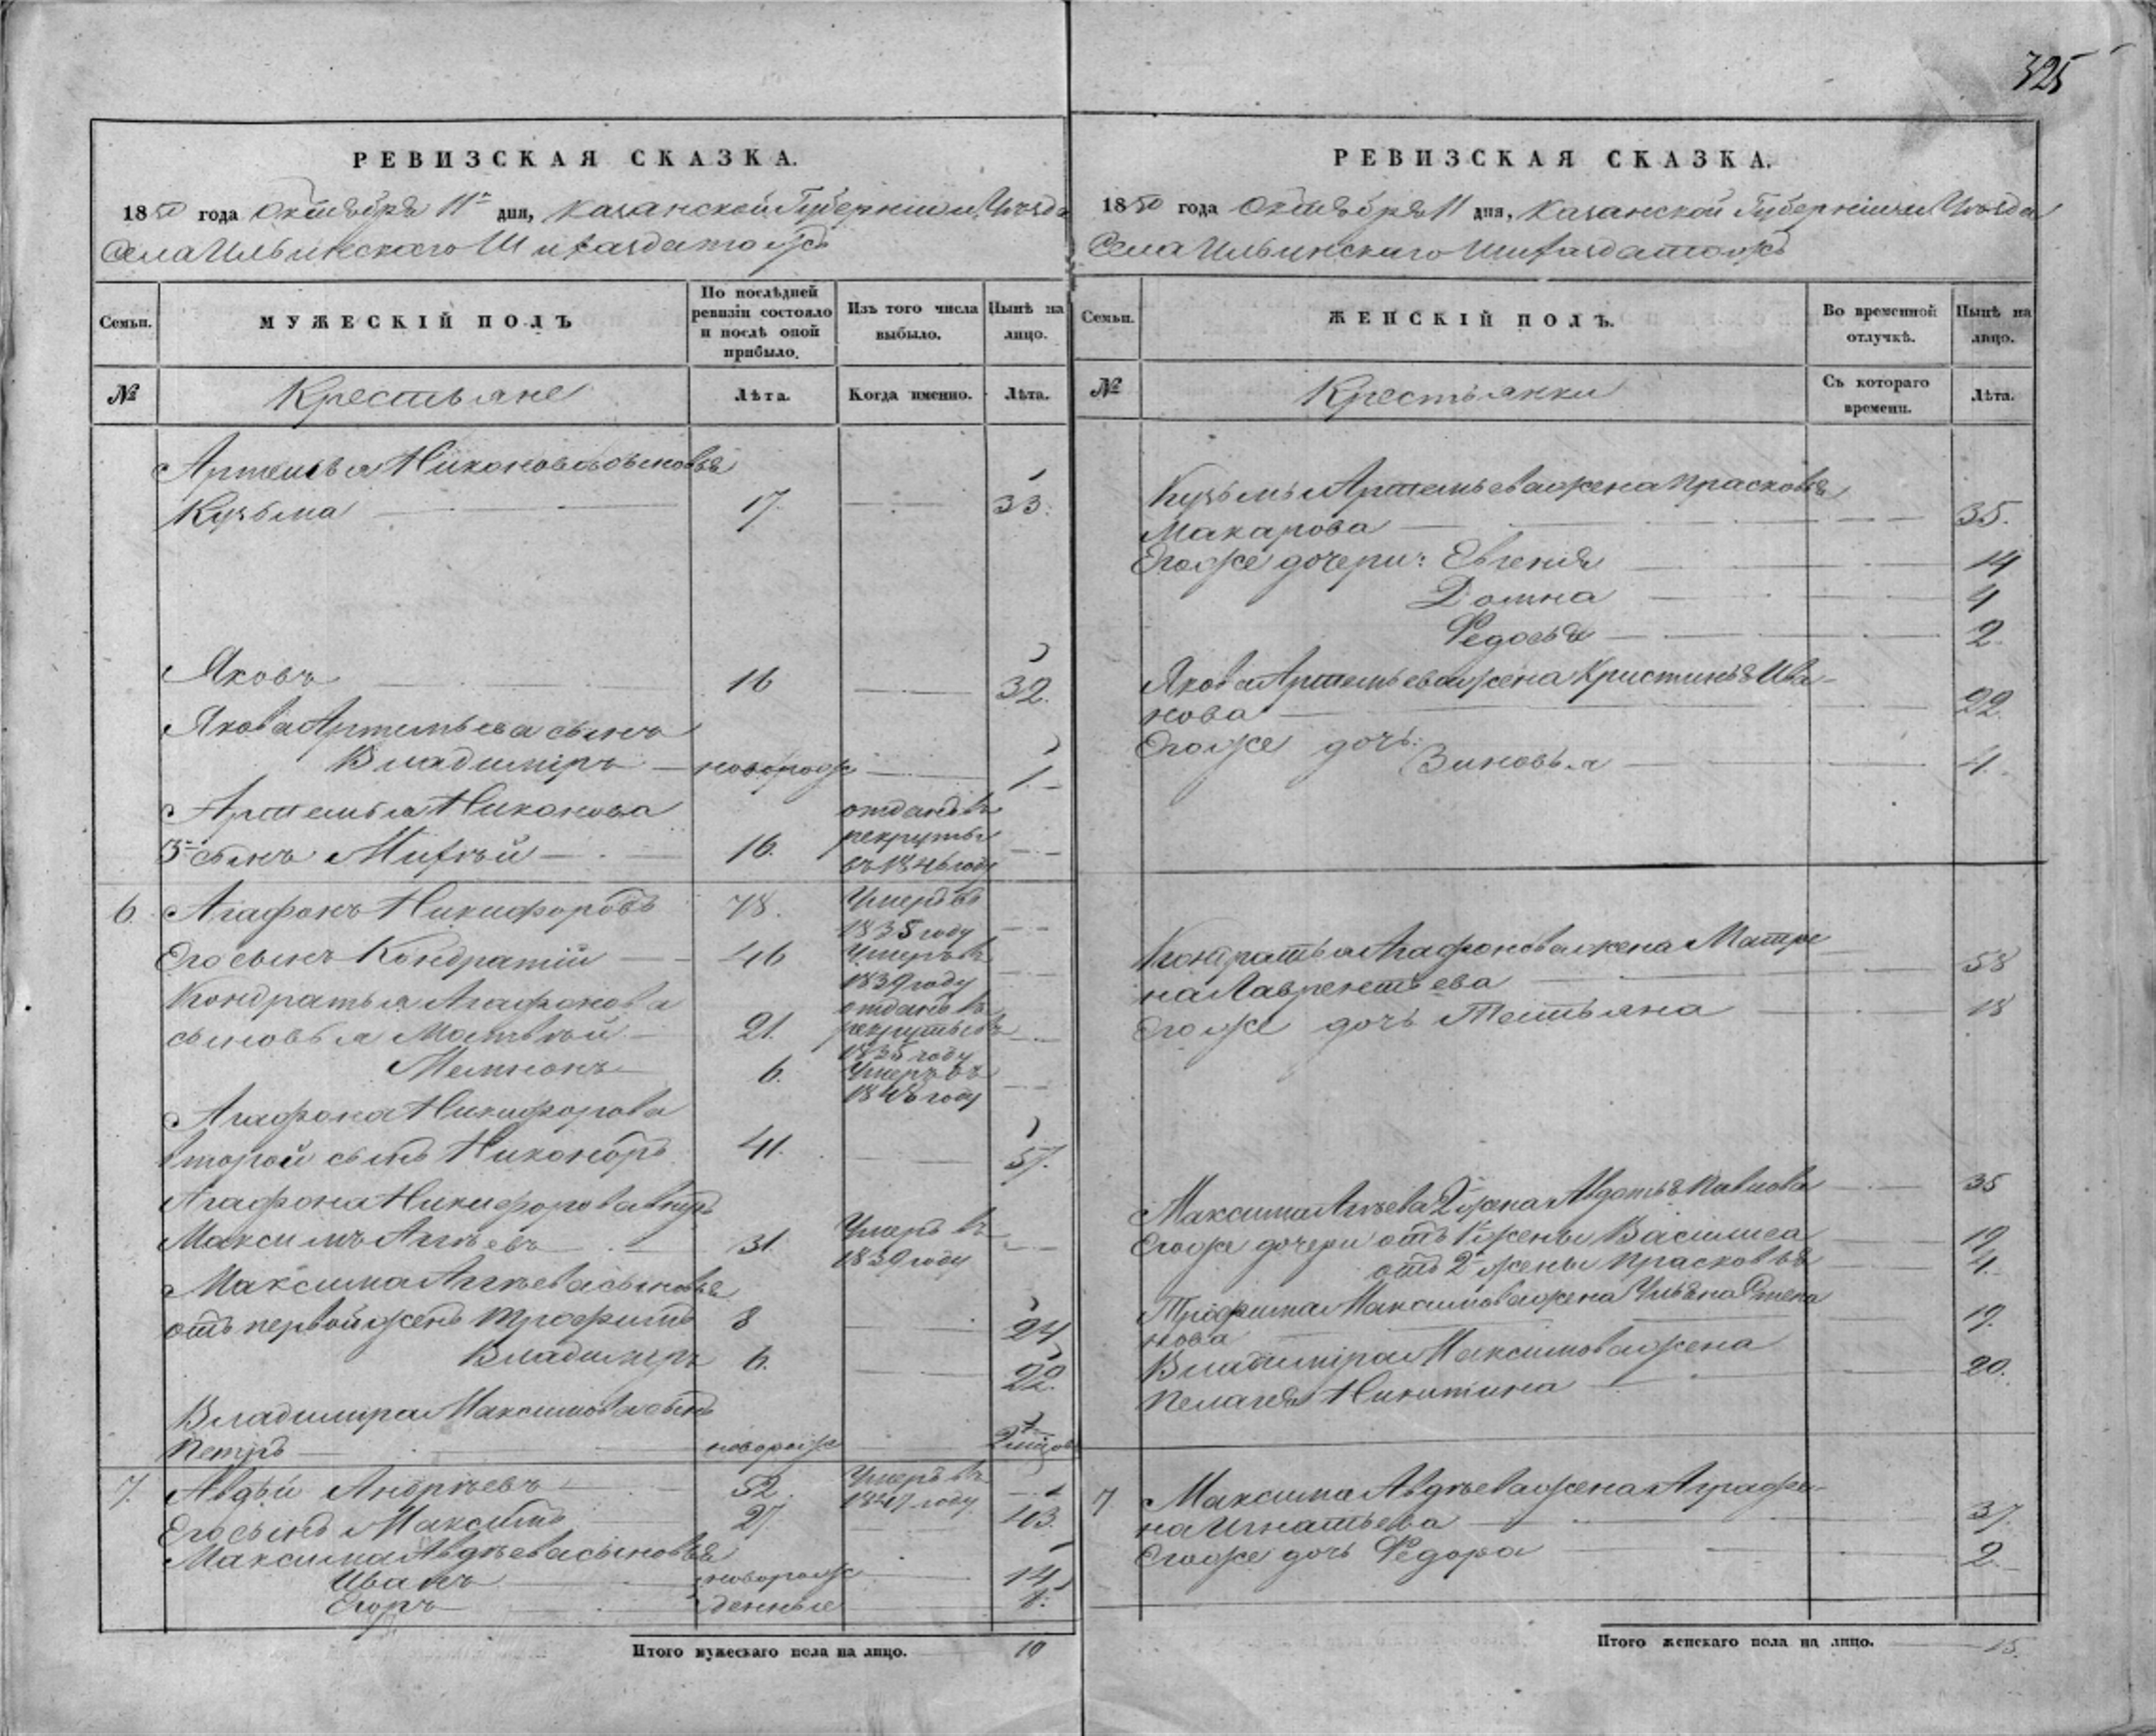 325
РЕВИЗСКАЯ СКАЗКА.
1850 года Октября 11го дня, Казанской Губерніи и Уѣзда
Села Ильинского Шигаздатожъ
Семьи.
МУЖЕСКІЙ ПОЛЪ
По послѣдней ревизіи состояло и послѣ оной прибыло.
Изъ того числа выбыло.
Нынѣ на лицо.
№
Крестьяне
Лѣта.
Когда именно.
Лѣта.
Артемья Никонова сыновья
Кузьма 17. 33.
Яковъ 16 32.
Якова Артемьева сынъ
Владиміръ новорож 1.
Артемья Никонова отданъ въ
3й сынъ Миѳѣй 16. рекруты
въ 1846 году
6. Агафонъ Никифоровъ 78. Умеръ въ
1835 году
Его сынъ Кондратій 46 Умеръ въ
1839 году
Кондратья Агафонова отданъ въ
сыновья Матвѣй 21. рекруты въ
1835 году
Мемнонъ 6. Умеръ въ
18 году
Агафона Никифорова
второй сынъ Никоноръ 41. 57.
Агафона Никифорова внукъ
Максимъ Агѣевъ 31. Умеръ въ
1839 году
Максима Агѣева сыновья
отъ первой жены Трофимъ 8 24
Владиміръ 6. 22.
Владиміра Максимова сынъ
Петръ новорож 2 мѣсяцов
7. Авдѣй Андрѣевъ 52. Умеръ въ
1847 году
Его сынъ Максимъ 27 43.
Максима Авдѣева сыновья
Иванъ новорож 14
Егоръ денные 8.
Итого мужескаго пола на лицо. 10
РЕВИЗСКАЯ СКАЗКА.
1850 года Октября 11 дня, Казанской Губерніи и Уѣзда
Села Ильинскаго Шигаздатожъ
Семьи.
ЖЕНСКІЙ ПОЛЪ.
Во временной отлучкѣ.
Нынѣ на лицо.
№
Крестьянки
Съ котораго времени.
Лѣта.
Кузьмы Артемьева жена Прасковья
Макарова 35.
Его же дочери: Евгенія 14
Домна 4
Ѳедосья 2.
Якова Артемьева жена Кристинья Ива-
нова 22.
Его же дочь:
Зиновья 4.
Кондратья Агафонова жена Матре
на Лаврентьева 58
Его же дочь Татьяна 18
Максима Агѣева 2я жена Авдотья Павлова 35
Его же дочери отъ 1й жены Василиса 19
отъ 2й жены Прасковья 4.
Трофима Максимова жена Ульяна Степа
нова 19.
Владиміра Максимова жена
Пелагея Никитина 20.
7 Максима Авдѣева жена Аграфе-
на Игнатьева 37.
Его же дочь Ѳедора 2.
Итого женскаго пола на лицо. 15.